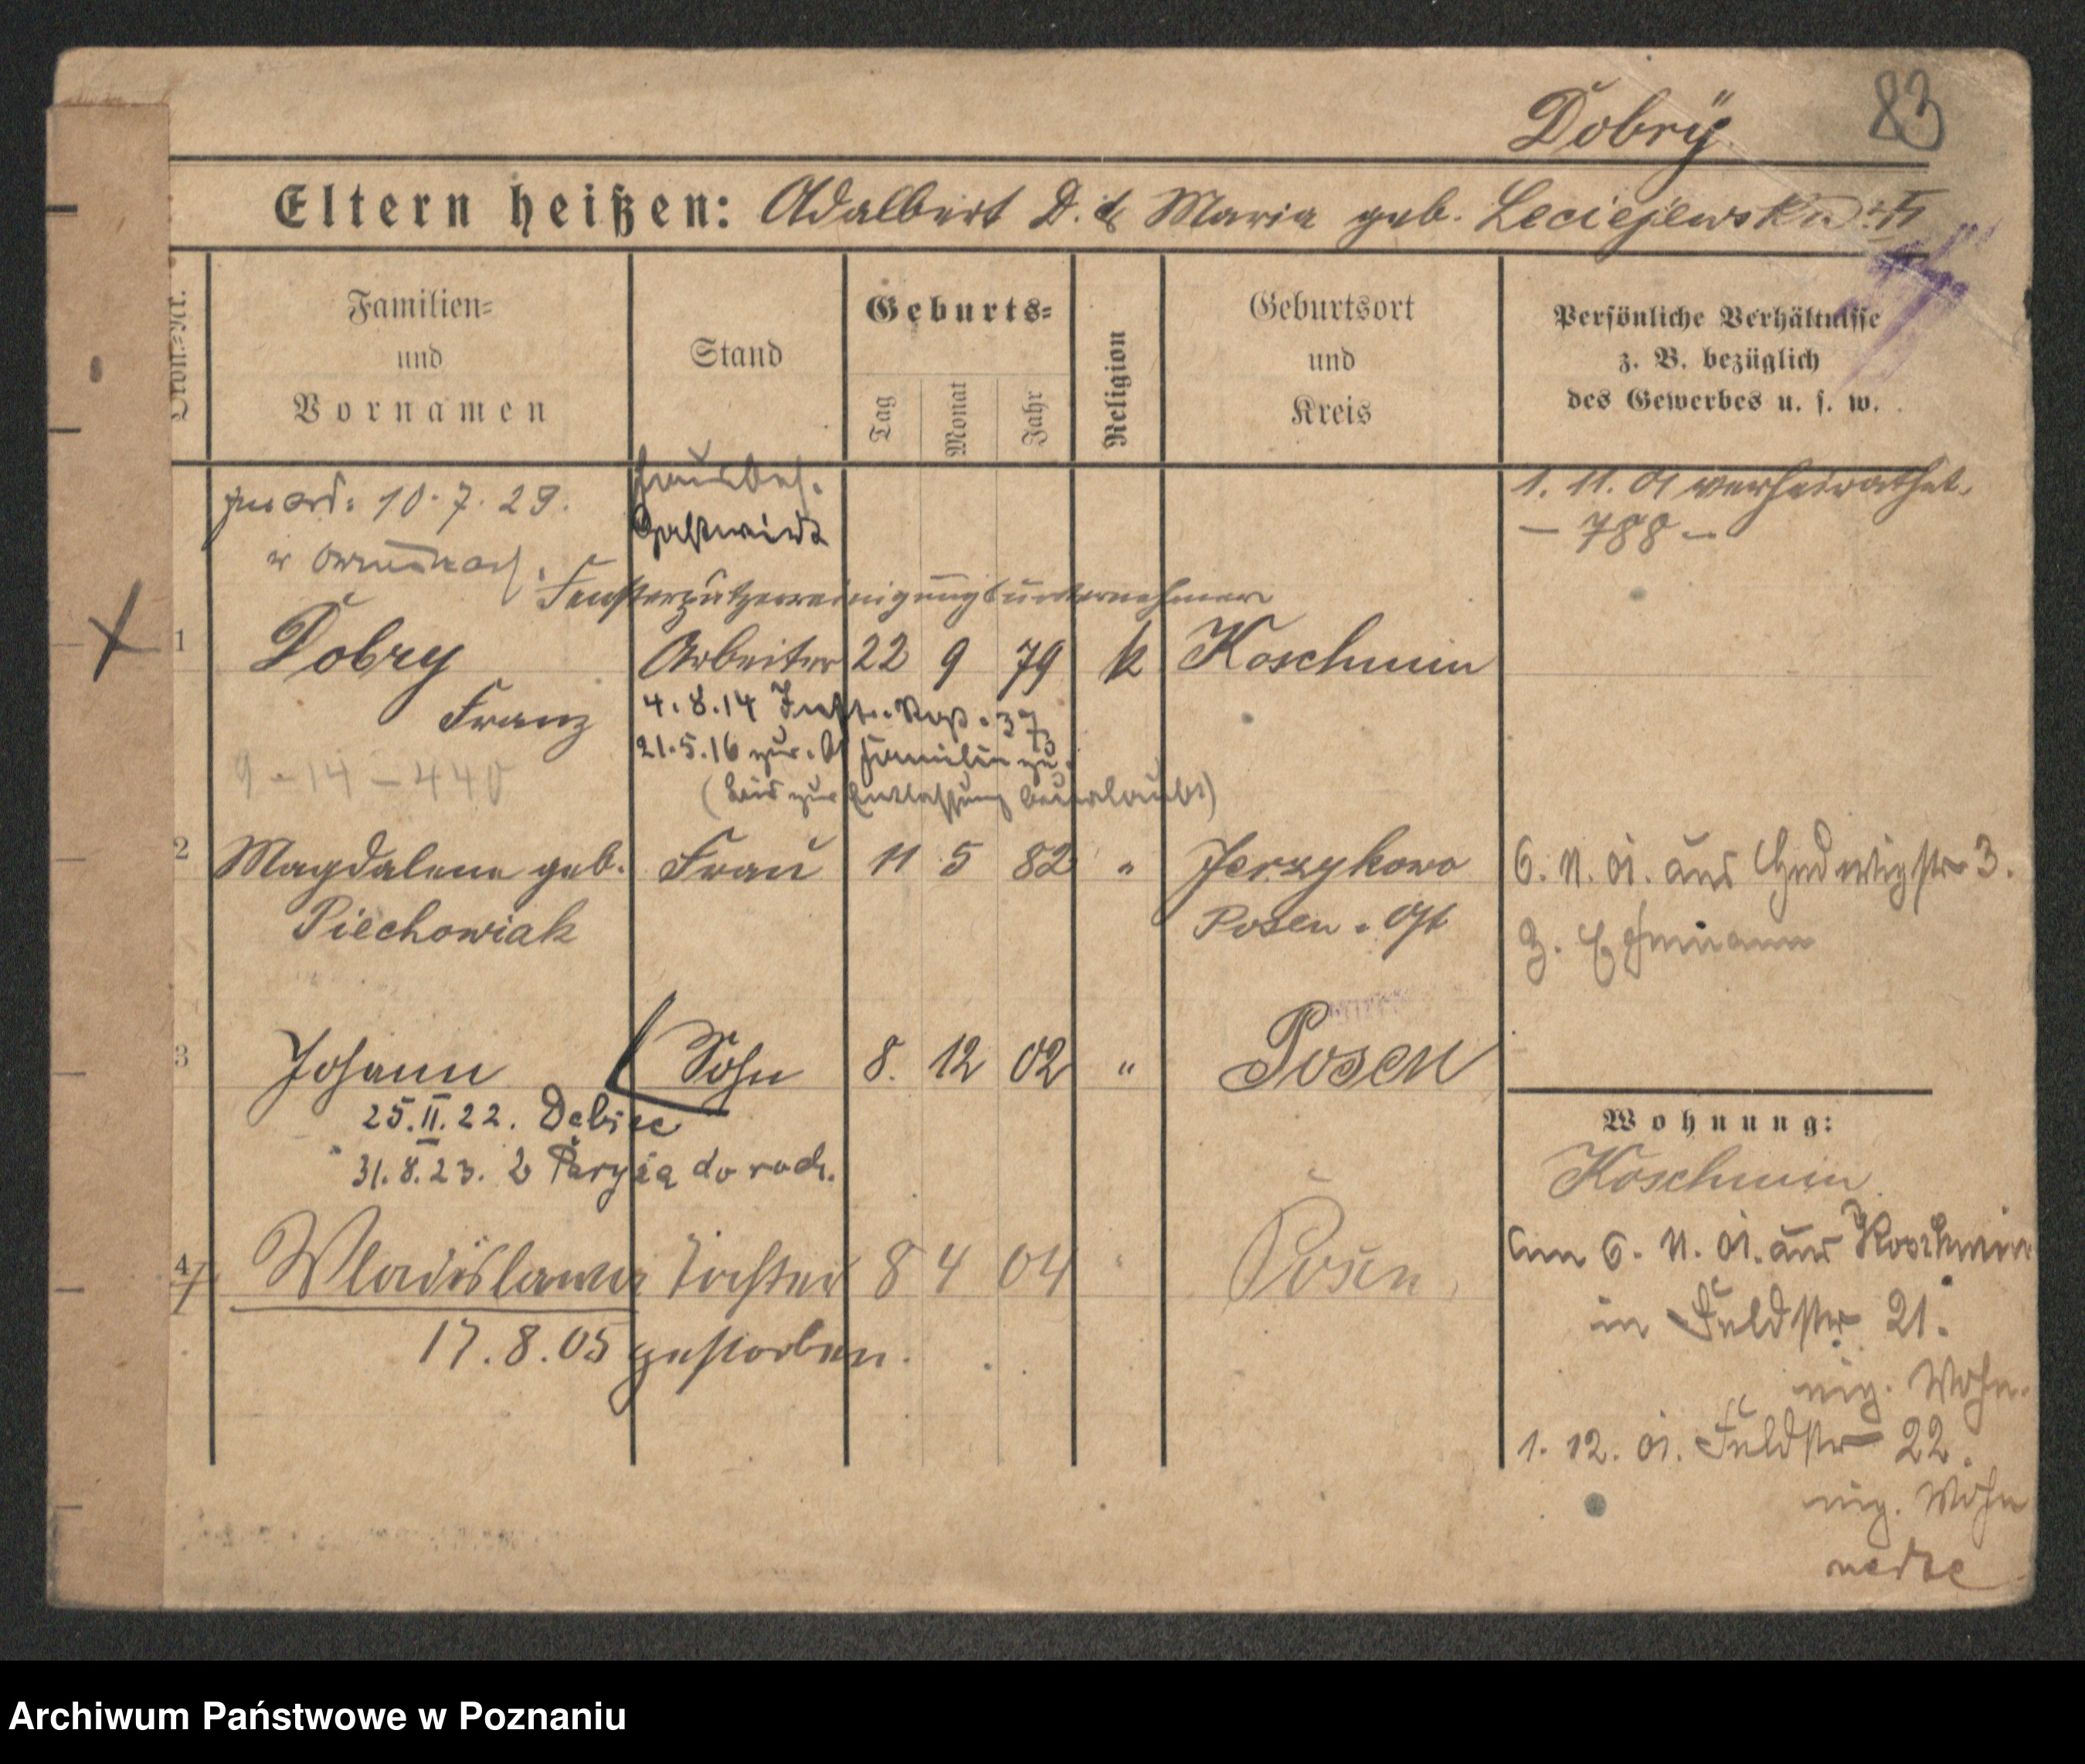 Dobrÿ. 83
Eltern heißen: Adalbert D. & Maria geb. Leciejewska
Familien= und Vornamen
Stand
Geburts=
Tag Monat Jahr
Religion
Geburtsort und Kreis
Persönliche Verhältnisse z. B. bezüglich des Gewerbes u. s. w.
10.7.29.
Hausbes.
Gastwirt
1. 11. 01 verheirathet.
– 788 –
Fensterputzereinigungsunternehmer
1 Dobry Arbeiter 22 9 79 k Koschmin
Franz
4.8.14 37
21.5.16 zur Familie zu
9-14-440
(bis zur Entlassung beurlaubt)
2 Magdalena geb. Frau 11 5 82 " Jerzykowo 6. 11. 01. aus Hedwigstr 3.
Piechowiak Posen. Ost
3 Johann Sohn 8. 12 02 " Posen
25.II.22. Debiec
31.8.23. z Paryża do rodz.
Wohnung:
Koschmin
4 Wladislawa Tochter 8 4 04 " Posen
17.8.05 gestorben.
am 6. 11. 01. aus Koschmin
in Feldstr 21.
eig. Wohn.
1. 12. 01. Feldstr 22.
eig. Wohn
Archiwum Państwowe w Poznaniu